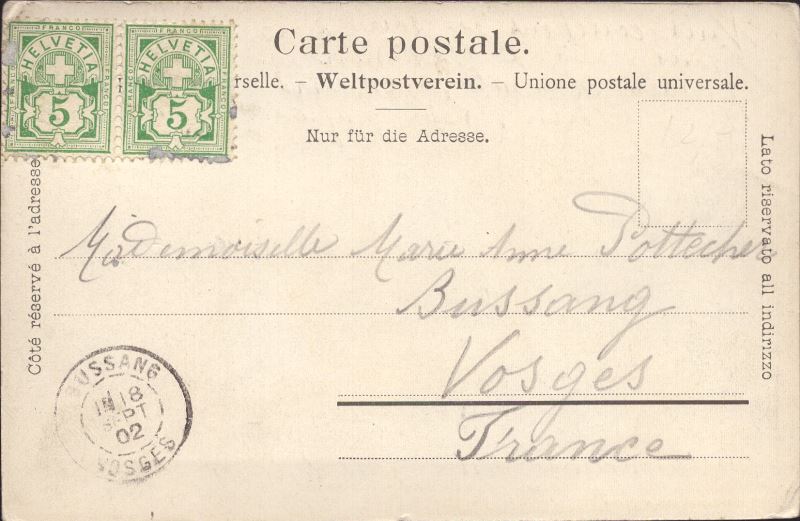 FRANCO
HELVETIA
FRANCO
FRANCO
5
FRANCO
HELVETIA
FRANCO
FRANCO
5
Carte postale.
rselle. – Weltpostverein. – Unione postale universale.
Nur für die Adresse.
Côté réservé à l'adresse
Lato riservato all indirizzo
12
Mademoiselle Marie Anne Pottecher
Bussang
Vosges
France
BUSSANG
18
SEPT
02
VOSGES